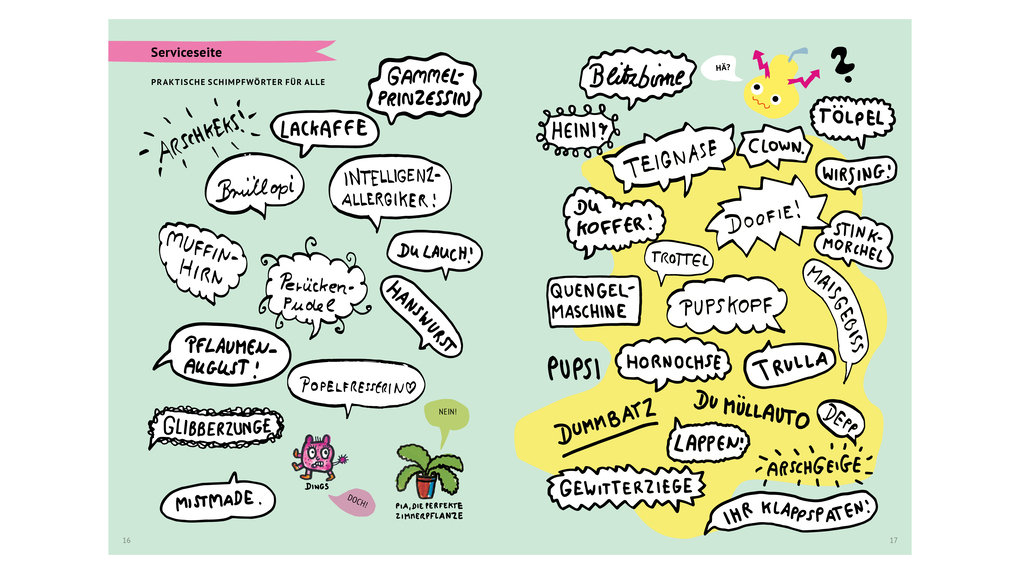 Serviceseite
PRAKTISCHE SCHIMPFWÖRTER FÜR ALLE
GAMMEL-
PRINZESSIN
ARSCHKEKS!
LACKAFFE
Brüllopi
INTELLIGENZ-
ALLERGIKER!
MUFFIN-
HIRN
Perücken-
Pudel
DU LAUCH!
HANSWURST
PFLAUMEN-
AUGUST!
POPELFRESSERIN♡
GLIBBERZUNGE
NEIN!
DINGS
DOCH!
PIA, DIE PERFEKTE
ZIMMERPFLANZE
MISTMADE.
16
Blitzbirne
HÄ?
?
TÖLPEL
HEINI?
TEIGNASE
CLOWN.
WIRSING!
DU
KOFFER!
DOOFIE!
STINK-
MORCHEL
TROTTEL
MAISGEBISS
QUENGEL-
MASCHINE
PUPSKOPF
PUPSI
HORNOCHSE
TRULLA
DUMMBATZ
DU MÜLLAUTO
DEPP
LAPPEN!
ARSCHGEIGE
GEWITTERZIEGE
IHR KLAPPSPATEN!
17